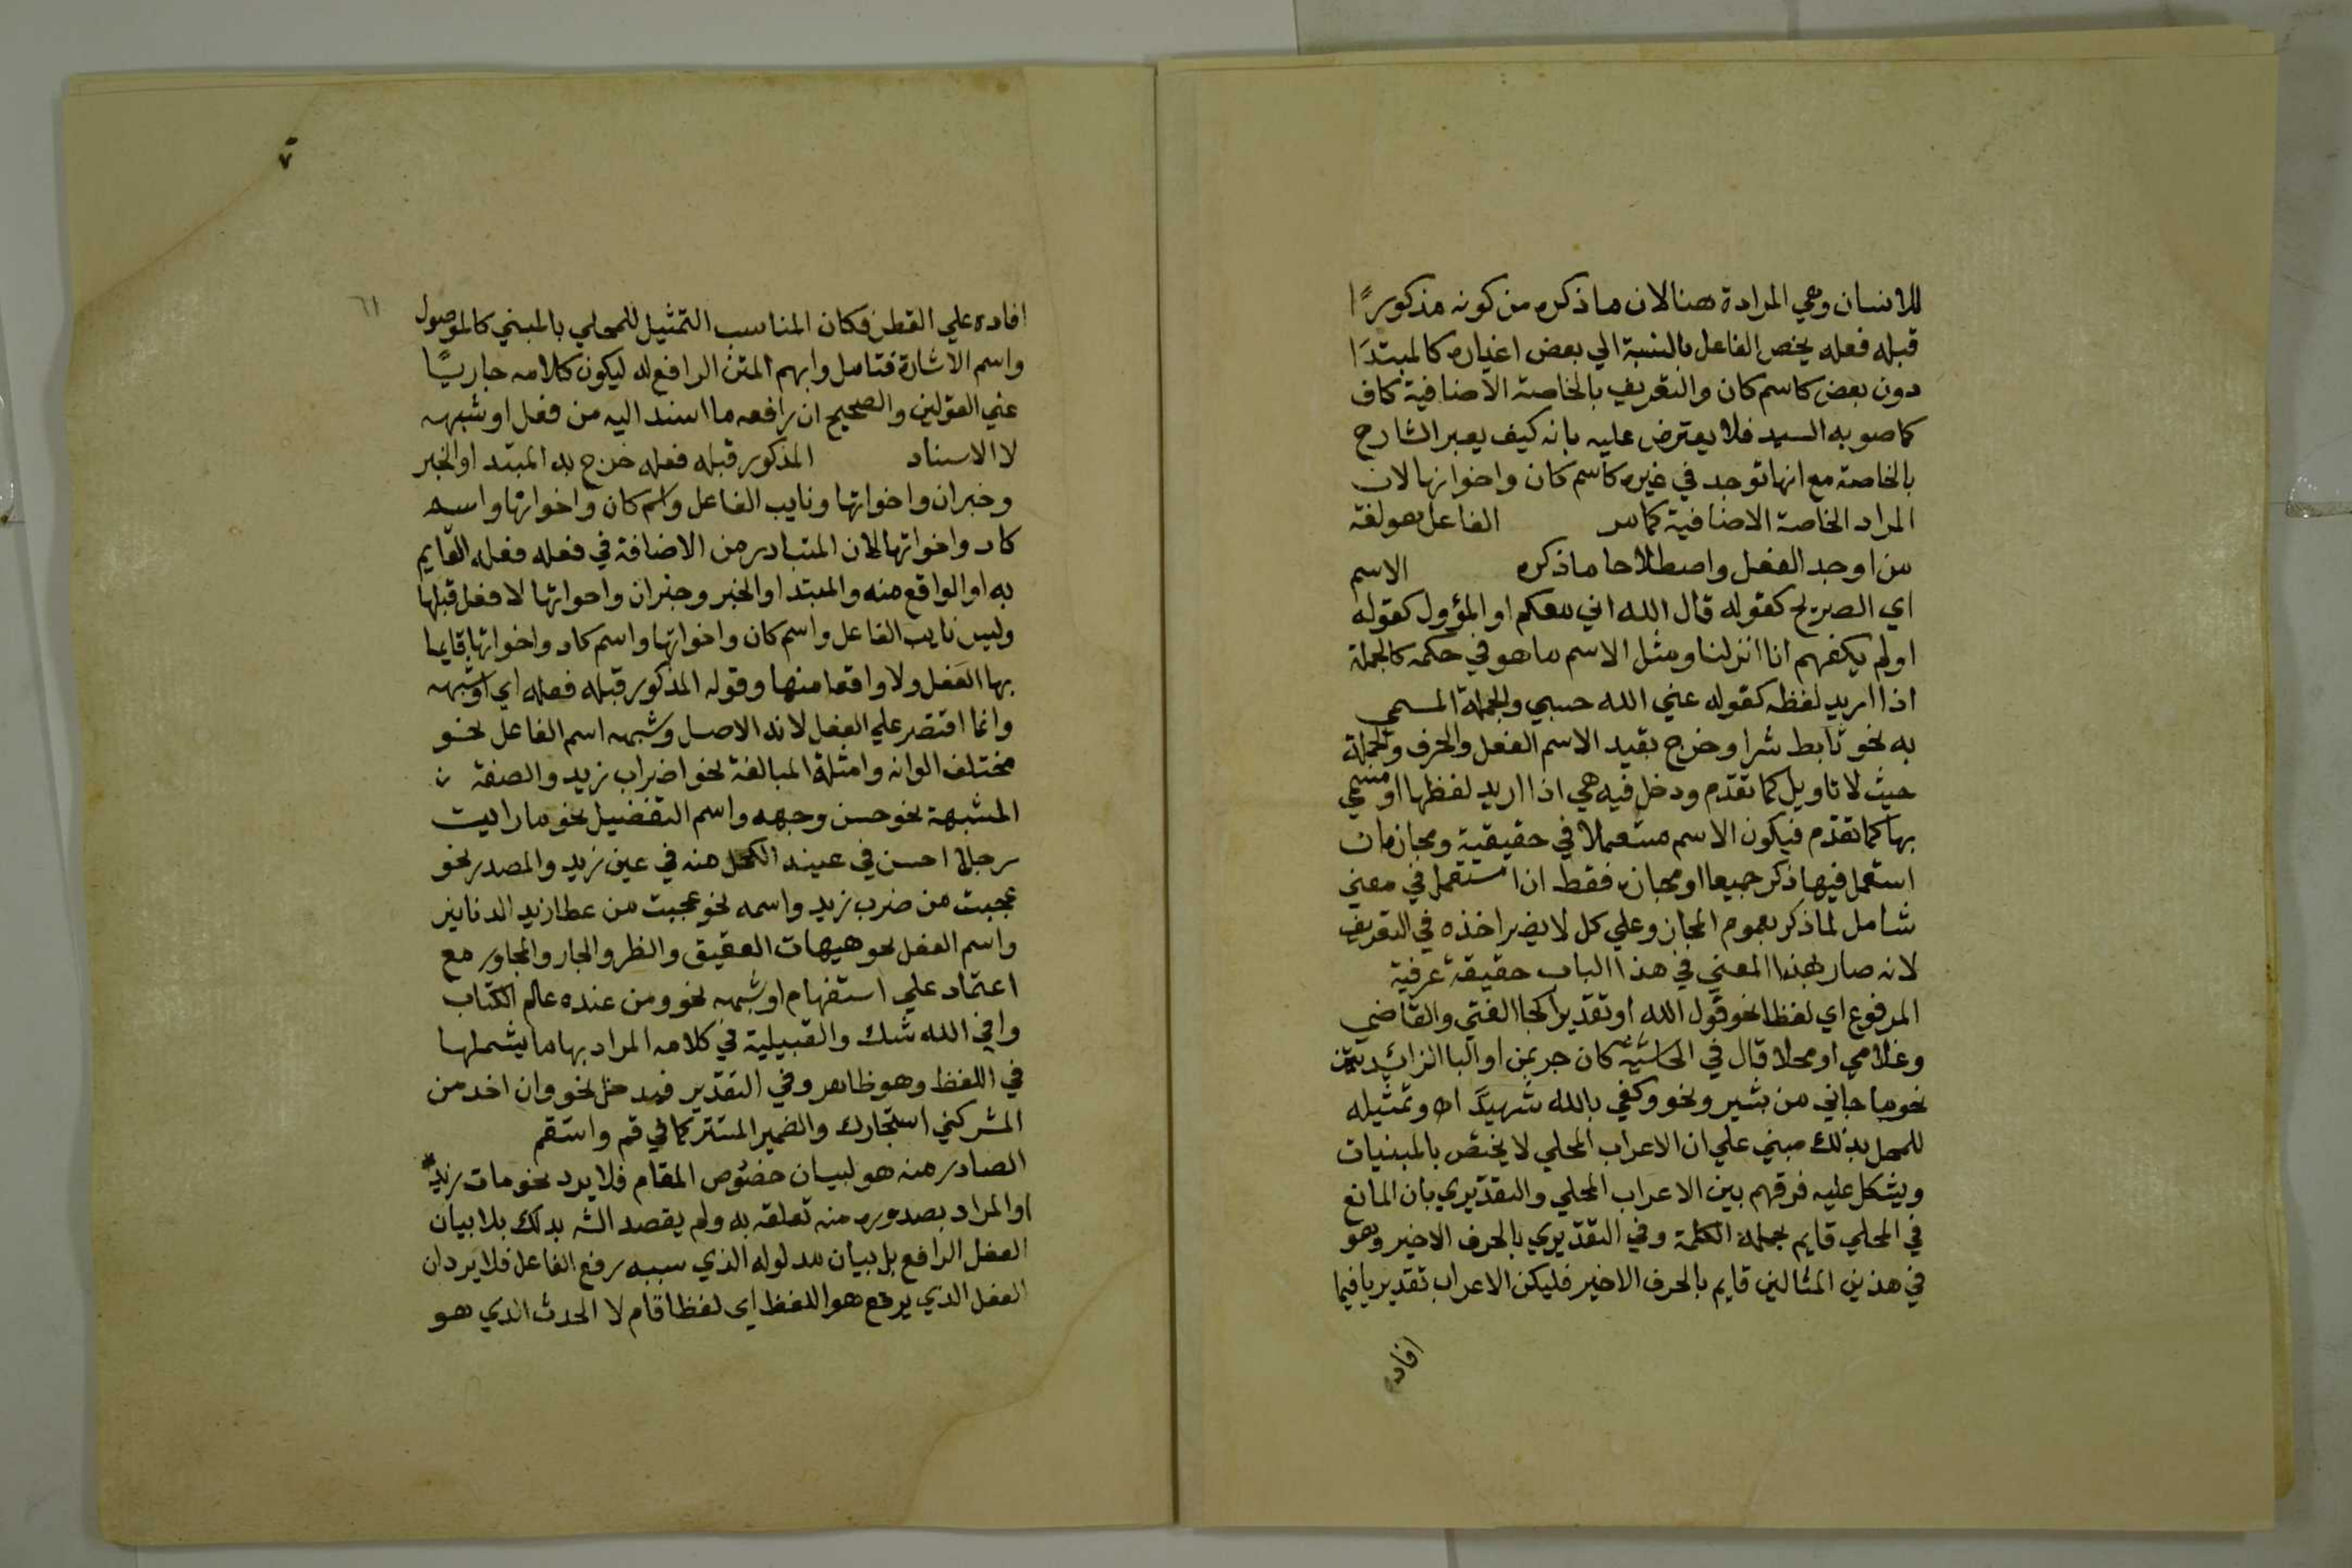 للانسان وهي المرادة هنا لان ما ذكره من كونه مذكورًا
قبله فعله يخص الفاعل بالنسبة الي بعض اغياره كالمبتدَا
دون بعض كاسم كان والتعريف بالخاصة الاضافية كاف
كما صوبه السيد فلا يعترض عليه بانه كيف يعبر الشارح
بالخاصة مع انها توجد في غيره كاسم كان واخواتها لان
المراد الخاصة الاضافية كما مر الفاعل هو لغة
من اوجد الفعل واصطلاحا ما ذكره الاسم
اي الصريح كقوله قال الله اني معكم او المؤول كقوله
اولم يكفهم انا انزلنا ومثل الاسم ما هو في حكمه كالجملة
اذا اريد لفظه كقوله عني الله حسبي والجملة المسمي
به نحو تابط شرا وخرج بقيد الاسم الفعل والحرف والجملة
حيث لا تاويل كما تقدم ودخل فيه هي اذا اريد لفظها او مسمي
بها كما تقدم فيكون الاسم مستعملا في حقيقية ومجاز ان
استعمل فيها ذكر جميعا او مجاز فقط ان استعمل في معني
شامل لما ذكر بعموم المجاز وعلي كل لا يضر اخذه في التعريف
لانه صار بهذا المعني في هذا الباب حقيقة عرفية
المرفوع اي لفظا نحو قول الله او تقديرا كجا الفتي والقاضي
وغلامي او محلا قال في الحاشية كان جر بمن او البا الزائدتين
نحو ما جاني من بشير ونحو وكفي بالله شهيدَا اه وتمثيله
للمحل بذلك مبني علي ان الاعراب المحلي لا يختص بالمبنيات
ويشكل عليه فرقهم بين الاعراب المحلي والتقديري بان المانع
في المحلي قايم بجملة الكلمة وفي التقديري بالحرف الاخير وهو
في هذين المثالين قايم بالحرف الاخير فليكن الاعراب تقديريا فيما
افاده
٦١
افاده علي القطر فكان المناسب التمثيل للمحلي بالمبني كالموصول
واسم الاشارة فتامل وابهم المتن الرافع له ليكون كلامه جاريًا
علي القولين والصحيح ان رافعه ما اسند اليه من فعل او شبهه
لا الاسناد المذكور قبله فعله خرج به المبتدا والخبر
وخبر ان واخواتها ونايب الفاعل واسم كان واخواتها واسم
كاد واخواتها لان المتبادر من الاضافة في فعله فعله القايم
به او الواقع منه والمبتدا والخبر وخبر ان واخواتها لا فعل قبلها
وليس نايب الفاعل واسم كان واخواتها واسم كاد واخواتها قايما
بها الفعل ولا واقعا منها وقوله المذكور قبله فعله اي او شبهه
وانما اقتصر علي الفعل لانه الاصل وشبهه اسم الفاعل نحو
مختلف الوانه وامثلة المبالغة نحو اضراب زيد والصفة
المشبهة نحو حسن وجهه واسم التفضيل نحو ما رايت
رجلا احسن في عينه الكحل منه في عين زيد والمصدر نحو
عجبت من ضرب زيد واسمه نحو عجبت من عطا زيد الدنانير
واسم الفعل نحو هيهات العقيق والظر والجار والمجاور مع
اعتماد علي استفهام او شبهه نحو ومن عنده عالم الكتاب
وافي الله شك والقبيلية في كلامه المراد بها ما يشملها
في اللفظ وهو ظاهر وفي التقدير فيدخل نحو وان احد من
المشركين استجارك والضمير المستتر كما في قم واستقم
الصادر منه هو لبيان خصوص المقام فلا يرد نحو مات زيد
او المراد بصدوره منه تعلقه به ولم يقصد الشه بذلك بلا بيان
الفعل الرافع بل بيان مدلوله الذي سببه رفع الفاعل فلا يرد ان
الفعل الذي يرفع هو اللفظ اي لفظا قام لا الحدث الذي هو